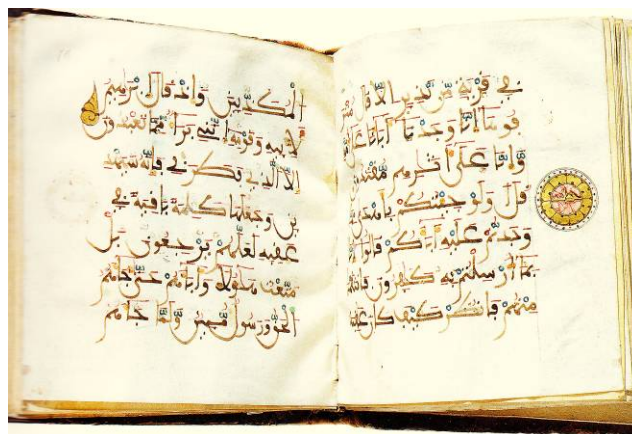 في قرية من نذير الا قال متر
فوها انا وجدنا اباءنا على
وانا على اثرهم مقتدون
قل اولو جئتكم باهدى
وجدتم عليه اباءكم قالوا
بما ارسلتم به كفرون فانتقمنا
منهم فانظر كيف كان عقبة
المكذبين واذ قال ابرهيم
لابيه وقومه انني براء مما تعبدون
الا الذي فطرني فانه سيهد
ين وجعلها كلمة باقية في
عقبه لعلهم يرجعون بل
متعت هؤلاء واباءهم حتى جاءهم
الحق ورسول مبين ولما جاءهم